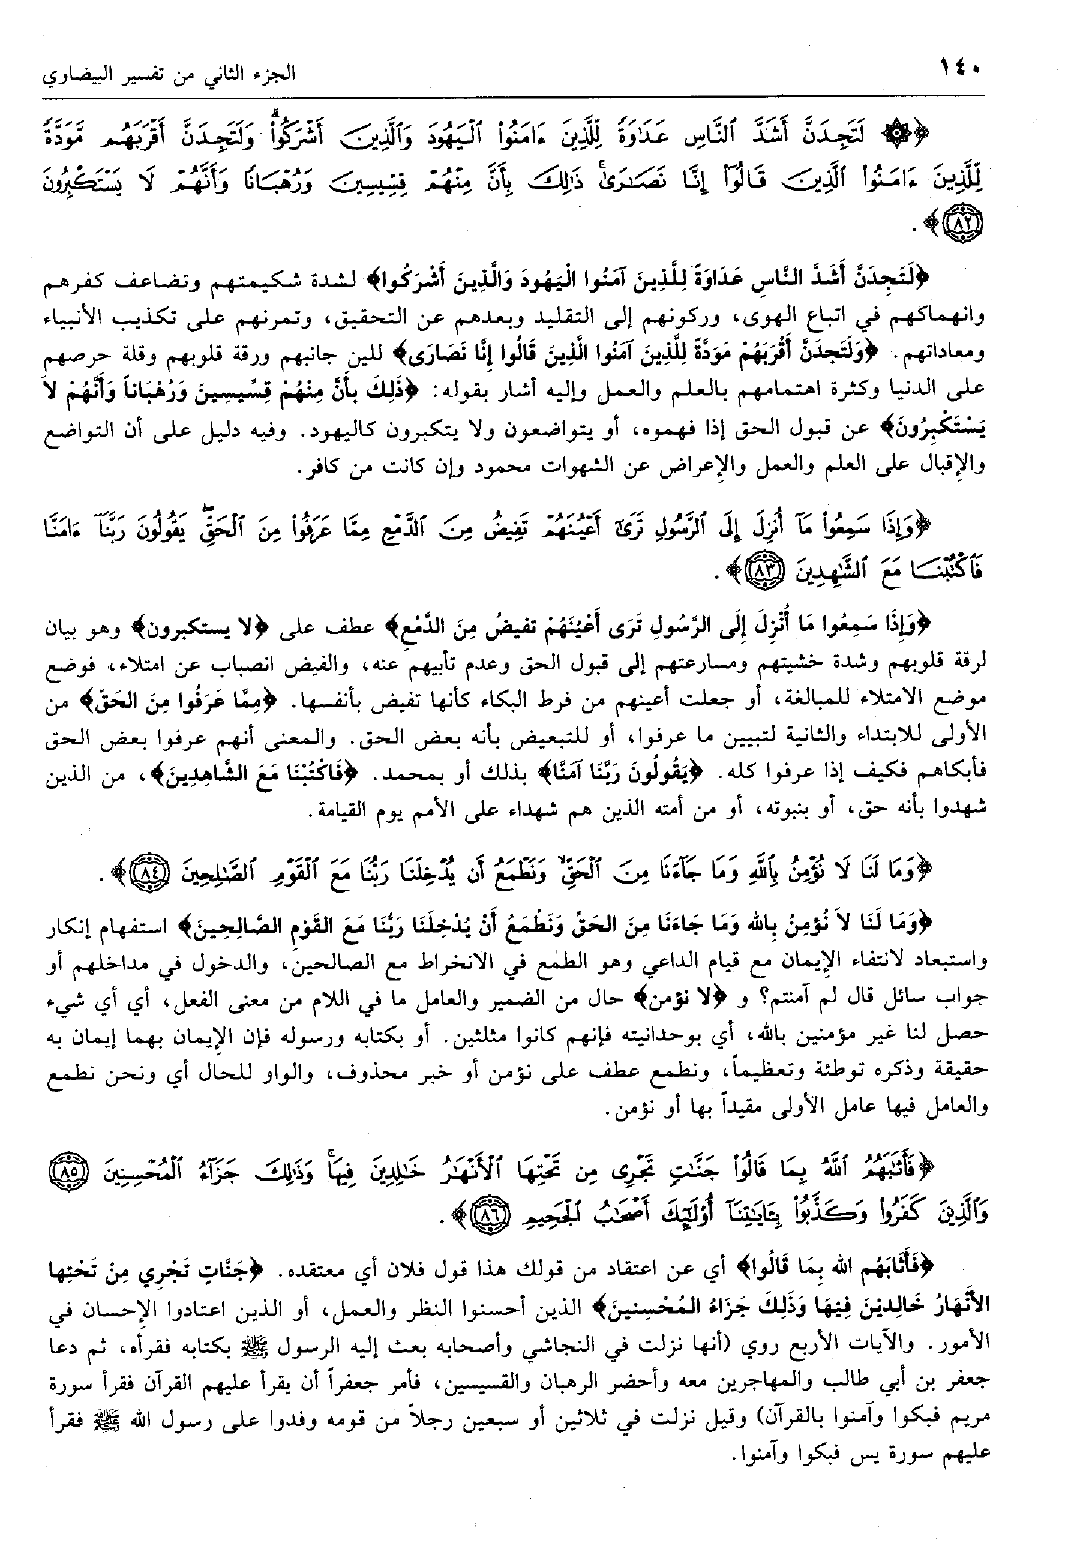 ١٤٠
الجزء الثاني من تفسير البيضاوي
﴿۞ لَتَجِدَنَّ أَشَدَّ ٱلنَّاسِ عَدَٰوَةً لِّلَّذِينَ ءَامَنُوا۟ ٱلْيَهُودَ وَٱلَّذِينَ أَشْرَكُوا۟ۖ وَلَتَجِدَنَّ أَقْرَبَهُم مَّوَدَّةً
لِّلَّذِينَ ءَامَنُوا۟ ٱلَّذِينَ قَالُوٓا۟ إِنَّا نَصَٰرَىٰۚ ذَٰلِكَ بِأَنَّ مِنْهُمْ قِسِّيسِينَ وَرُهْبَانًا وَأَنَّهُمْ لَا يَسْتَكْبِرُونَ
(٨٢)﴾.
﴿لَتَجِدَنَّ أَشَدَّ النَّاسِ عَدَاوَةً لِلَّذِينَ آمَنُوا الْيَهُودَ وَالَّذِينَ أَشْرَكُوا﴾ لشدة شكيمتهم وتضاعف كفرهم
وانهماكهم في اتباع الهوى، وركونهم إلى التقليد وبعدهم عن التحقيق، وتمرنهم على تكذيب الأنبياء
ومعاداتهم. ﴿وَلَتَجِدَنَّ أَقْرَبَهُمْ مَوَدَّةً لِلَّذِينَ آمَنُوا الَّذِينَ قَالُوا إِنَّا نَصَارَى﴾ للين جانبهم ورقة قلوبهم وقلة حرصهم
على الدنيا وكثرة اهتمامهم بالعلم والعمل وإليه أشار بقوله: ﴿ذَلِكَ بِأَنَّ مِنْهُمْ قِسِّيسِينَ وَرُهْبَاناً وَأَنَّهُمْ لاَ
يَسْتَكْبِرُونَ﴾ عن قبول الحق إذا فهموه، أو يتواضعون ولا يتكبرون كاليهود. وفيه دليل على أن التواضع
والإقبال على العلم والعمل والإعراض عن الشهوات محمود وإن كانت من كافر.
﴿وَإِذَا سَمِعُوا۟ مَآ أُنزِلَ إِلَى ٱلرَّسُولِ تَرَىٰٓ أَعْيُنَهُمْ تَفِيضُ مِنَ ٱلدَّمْعِ مِمَّا عَرَفُوا۟ مِنَ ٱلْحَقِّۖ يَقُولُونَ رَبَّنَآ ءَامَنَّا
فَٱكْتُبْنَا مَعَ ٱلشَّٰهِدِينَ (٨٣)﴾.
﴿وَإِذَا سَمِعُوا مَا أُنْزِلَ إِلَى الرَّسُولِ تَرَى أَعْيُنَهُمْ تَفيضُ مِنَ الدَّمْعِ﴾ عطف على ﴿لا يستكبرون﴾ وهو بيان
لرقة قلوبهم وشدة خشيتهم ومسارعتهم إلى قبول الحق وعدم تأبيهم عنه، والفيض انصباب عن امتلاء، فوضع
موضع الامتلاء للمبالغة، أو جعلت أعينهم من فرط البكاء كأنها تفيض بأنفسها. ﴿مِمَّا عَرَفُوا مِنَ الحَقِّ﴾ من
الأولى للابتداء والثانية لتبيين ما عرفوا، أو للتبعيض بأنه بعض الحق. والمعنى أنهم عرفوا بعض الحق
فأبكاهم فكيف إذا عرفوا كله. ﴿يَقُولُونَ رَبَّنَا آمَنَّا﴾ بذلك أو بمحمد. ﴿فَاكْتُبْنَا مَعَ الشَّاهِدِينَ﴾، من الذين
شهدوا بأنه حق، أو بنبوته، أو من أمته الذين هم شهداء على الأمم يوم القيامة.
﴿وَمَا لَنَا لَا نُؤْمِنُ بِٱللَّهِ وَمَا جَآءَنَا مِنَ ٱلْحَقِّ وَنَطْمَعُ أَن يُدْخِلَنَا رَبُّنَا مَعَ ٱلْقَوْمِ ٱلصَّٰلِحِينَ (٨٤)﴾.
﴿وَمَا لَنَا لاَ نُؤمِنُ بِالله وَمَا جَاءَنَا مِنَ الحَقِّ وَنَطْمَعُ أَنْ يُدْخِلَنَا رَبُّنَا مَعَ القَوْمِ الصَّالِحِينَ﴾ استفهام إنكار
واستبعاد لانتفاء الإيمان مع قيام الداعي وهو الطمع في الانخراط مع الصالحين، والدخول في مداخلهم أو
جواب سائل قال لم آمنتم؟ و ﴿لا نؤمن﴾ حال من الضمير والعامل ما في اللام من معنى الفعل، أي أي شيء
حصل لنا غير مؤمنين بالله، أي بوحدانيته فإنهم كانوا مثلثين. أو بكتابه ورسوله فإن الإيمان بهما إيمان به
حقيقة وذكره توطئة وتعظيماً، ونطمع عطف على نؤمن أو خبر محذوف، والواو للحال أي ونحن نطمع
والعامل فيها عامل الأولى مقيداً بها أو نؤمن.
﴿فَأَثَٰبَهُمُ ٱللَّهُ بِمَا قَالُوا۟ جَنَّٰتٍ تَجْرِى مِن تَحْتِهَا ٱلْأَنْهَٰرُ خَٰلِدِينَ فِيهَاۚ وَذَٰلِكَ جَزَآءُ ٱلْمُحْسِنِينَ (٨٥)
وَٱلَّذِينَ كَفَرُوا۟ وَكَذَّبُوا۟ بِـَٔايَٰتِنَآ أُو۟لَٰٓئِكَ أَصْحَٰبُ ٱلْجَحِيمِ (٨٦)﴾.
﴿فَأَثَابَهُم الله بِمَا قَالُوا﴾ أي عن اعتقاد من قولك هذا قول فلان أي معتقده. ﴿جَنَّاتٍ تَجْرِي مِنْ تَحْتِهَا
الأَنْهَارُ خَالِدِينَ فِيهَا وَذَلِكَ جَزَاءُ المُحْسِنِينَ﴾ الذين أحسنوا النظر والعمل، أو الذين اعتادوا الإحسان في
الأمور. والآيات الأربع روي (أنها نزلت في النجاشي وأصحابه بعث إليه الرسول ﷺ بكتابه فقرأه، ثم دعا
جعفر بن أبي طالب والمهاجرين معه وأحضر الرهبان والقسيسين، فأمر جعفراً أن يقرأ عليهم القرآن فقرأ سورة
مريم فبكوا وآمنوا بالقرآن) وقيل نزلت في ثلاثين أو سبعين رجلاً من قومه وفدوا على رسول الله ﷺ فقرأ
عليهم سورة يس فبكوا وآمنوا.